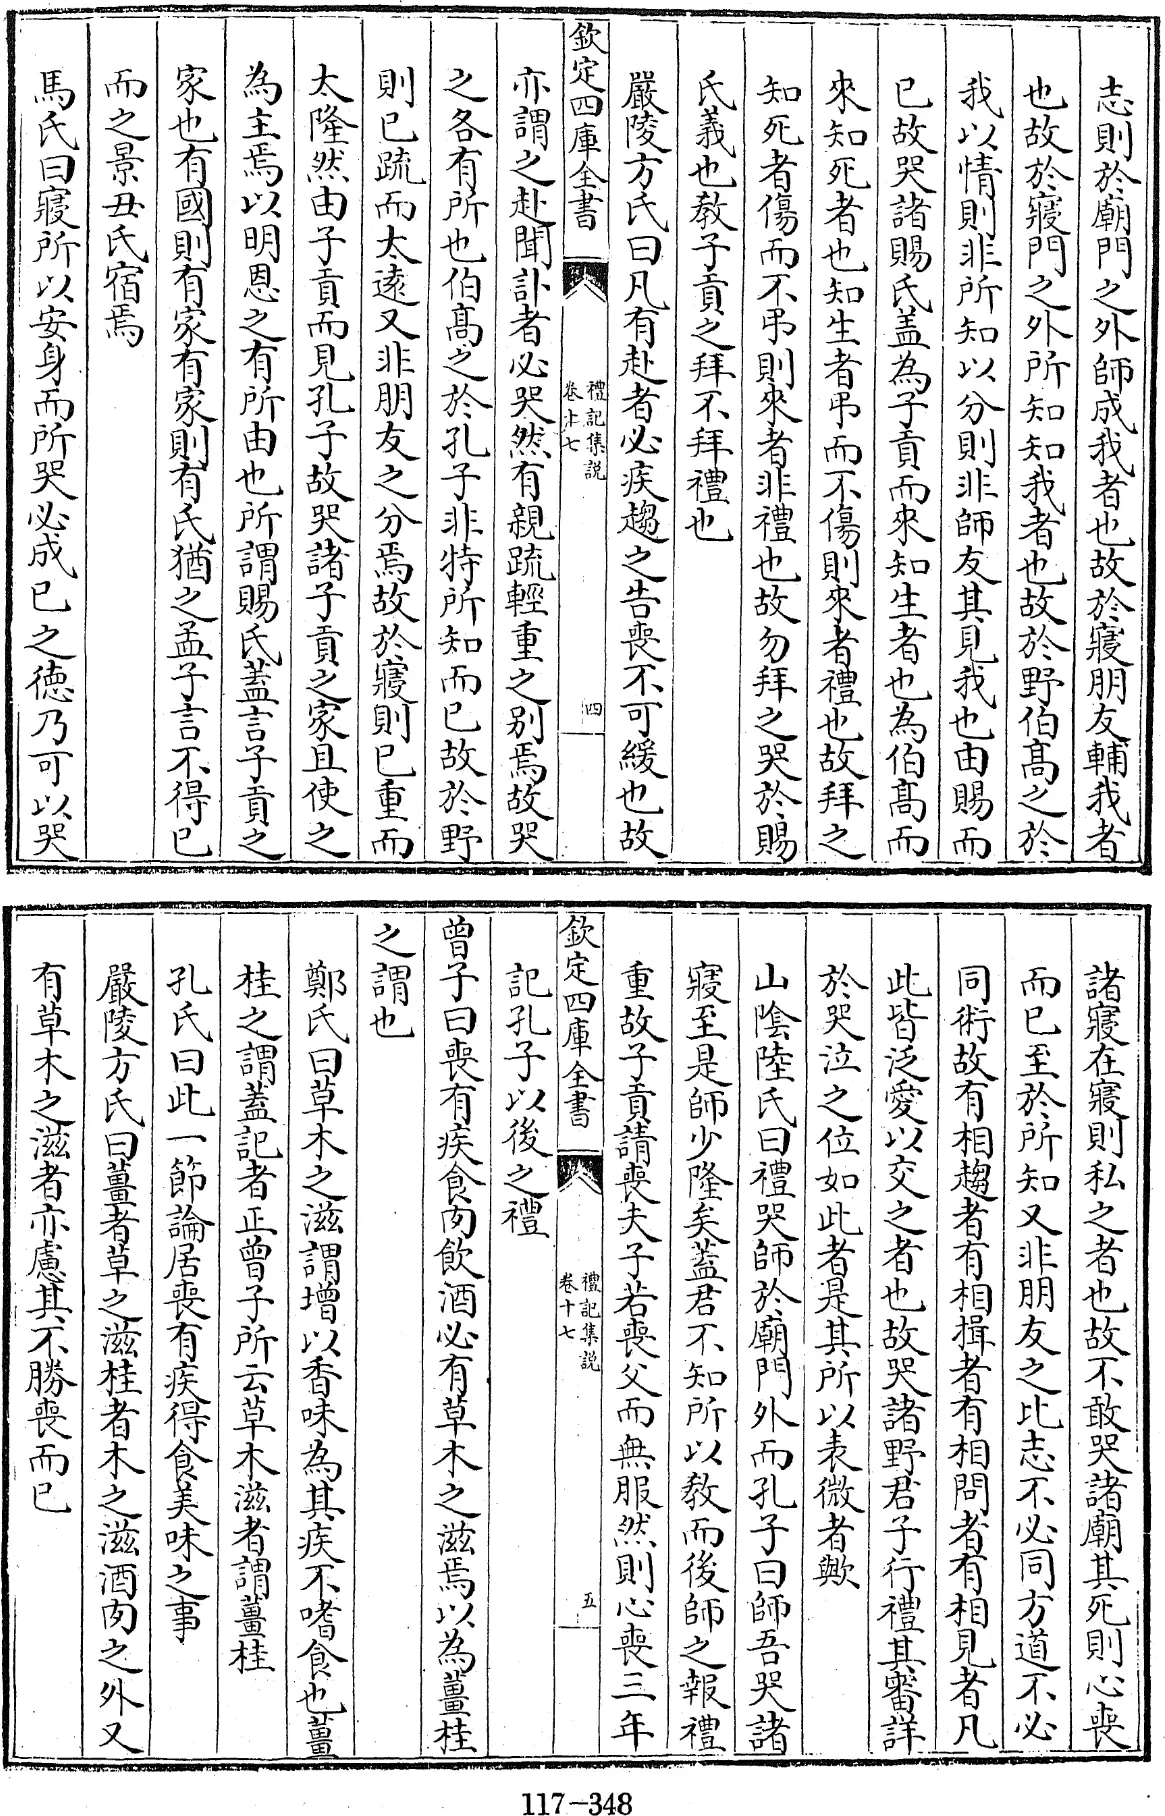 志則於廟門之外師成我者也故於寢朋友輔我者
也故於寢門之外所知知我者也故於野伯髙之於
我以情則非所知以分則非師友其見我也由賜而
已故哭諸賜氏盖為子貢而來知生者也為伯髙而
來知死者也知生者弔而不傷則來者禮也故拜之
知死者傷而不弔則來者非禮也故勿拜之哭於賜
氏義也教子貢之拜不拜禮也
嚴陵方氏曰凡有赴者必疾趨之告喪不可緩也故
欽定四庫全書
禮記集說
卷十七
四
亦謂之赴聞訃者必哭然有親疏輕重之别焉故哭
之各有所也伯髙之於孔子非特所知而已故於野
則已疏而太逺又非朋友之分焉故於寢則已重而
太隆然由子貢而見孔子故哭諸子貢之家且使之
為主焉以明恩之有所由也所謂賜氏蓋言子貢之
家也有國則有家有家則有氏猶之孟子言不得已
而之景丑氏宿焉
馬氏曰寢所以安身而所哭必成已之徳乃可以哭
諸寢在寢則私之者也故不敢哭諸廟其死則心喪
而已至於所知又非朋友之比志不必同方道不必
同術故有相趨者有相揖者有相問者有相見者凡
此皆泛愛以交之者也故哭諸野君子行禮其審詳
於哭泣之位如此者是其所以表微者歟
山陰陸氏曰禮哭師於廟門外而孔子曰師吾哭諸
寢至是師少隆矣蓋君不知所以教而後師之報禮
重故子貢請喪夫子若喪父而無服然則心喪三年
欽定四庫全書
禮記集說
卷十七
五
記孔子以後之禮
曾子曰喪有疾食肉飲酒必有草木之滋焉以為薑桂
之謂也
鄭氏曰草木之滋謂增以香味為其疾不嗜食也薑
桂之謂蓋記者正曾子所云草木滋者謂薑桂
孔氏曰此一節論居喪有疾得食美味之事
嚴陵方氏曰薑者草之滋桂者木之滋酒肉之外又
有草木之滋者亦慮其不勝喪而已
117-348